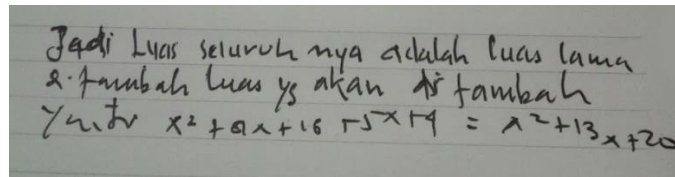 Jadi Luas seluruh nya adalah luas lama
di tambah luas yg akan di tambah
yaitu x² + 8x + 16 + 5x + 4 = x² + 13x + 20